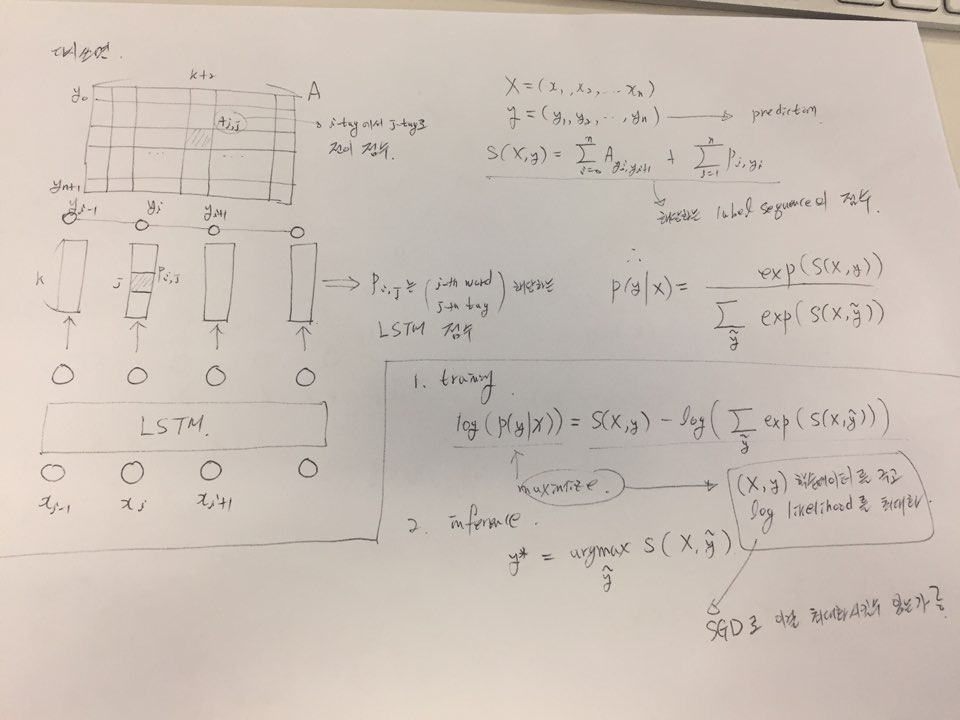 다시쓰면.
k+2
y_0
A
+i,j
i-tag에서 j-tag로
전이 점수.
...
...
y_{n+1}
y_{i-1} y_i y_{i+1}
k
j
P_{i,j}
⇒ P_{i,j}는 (i-th word j-th tag) 해당하는
LSTM 점수
LSTM.
x_{i-1} x_i x_{i+1}
X = (x_1, x_2, ... x_n)
y = (y_1, y_2, ..., y_n) → prediction
S(X,y) = \sum_{i=0}^{n} A_{y_i,y_{i+1}} + \sum_{i=1}^{n} P_{i,y_i}
해당하는 label sequence의 점수.
∴
p(y|X) = \frac{exp(S(X,y))}{\sum_{ỹ} exp(S(X,ỹ))}
1. training
log(p(y|X)) = S(X,y) - log(\sum_{ỹ} exp(S(X,ỹ)))
maximize.
(X,y) 학습데이터를 주고
log likelihood를 최대화.
2. inference.
y* = argmax_{ỹ} S(X,ỹ)
SGD로 이걸 최대화시킬수 있는가